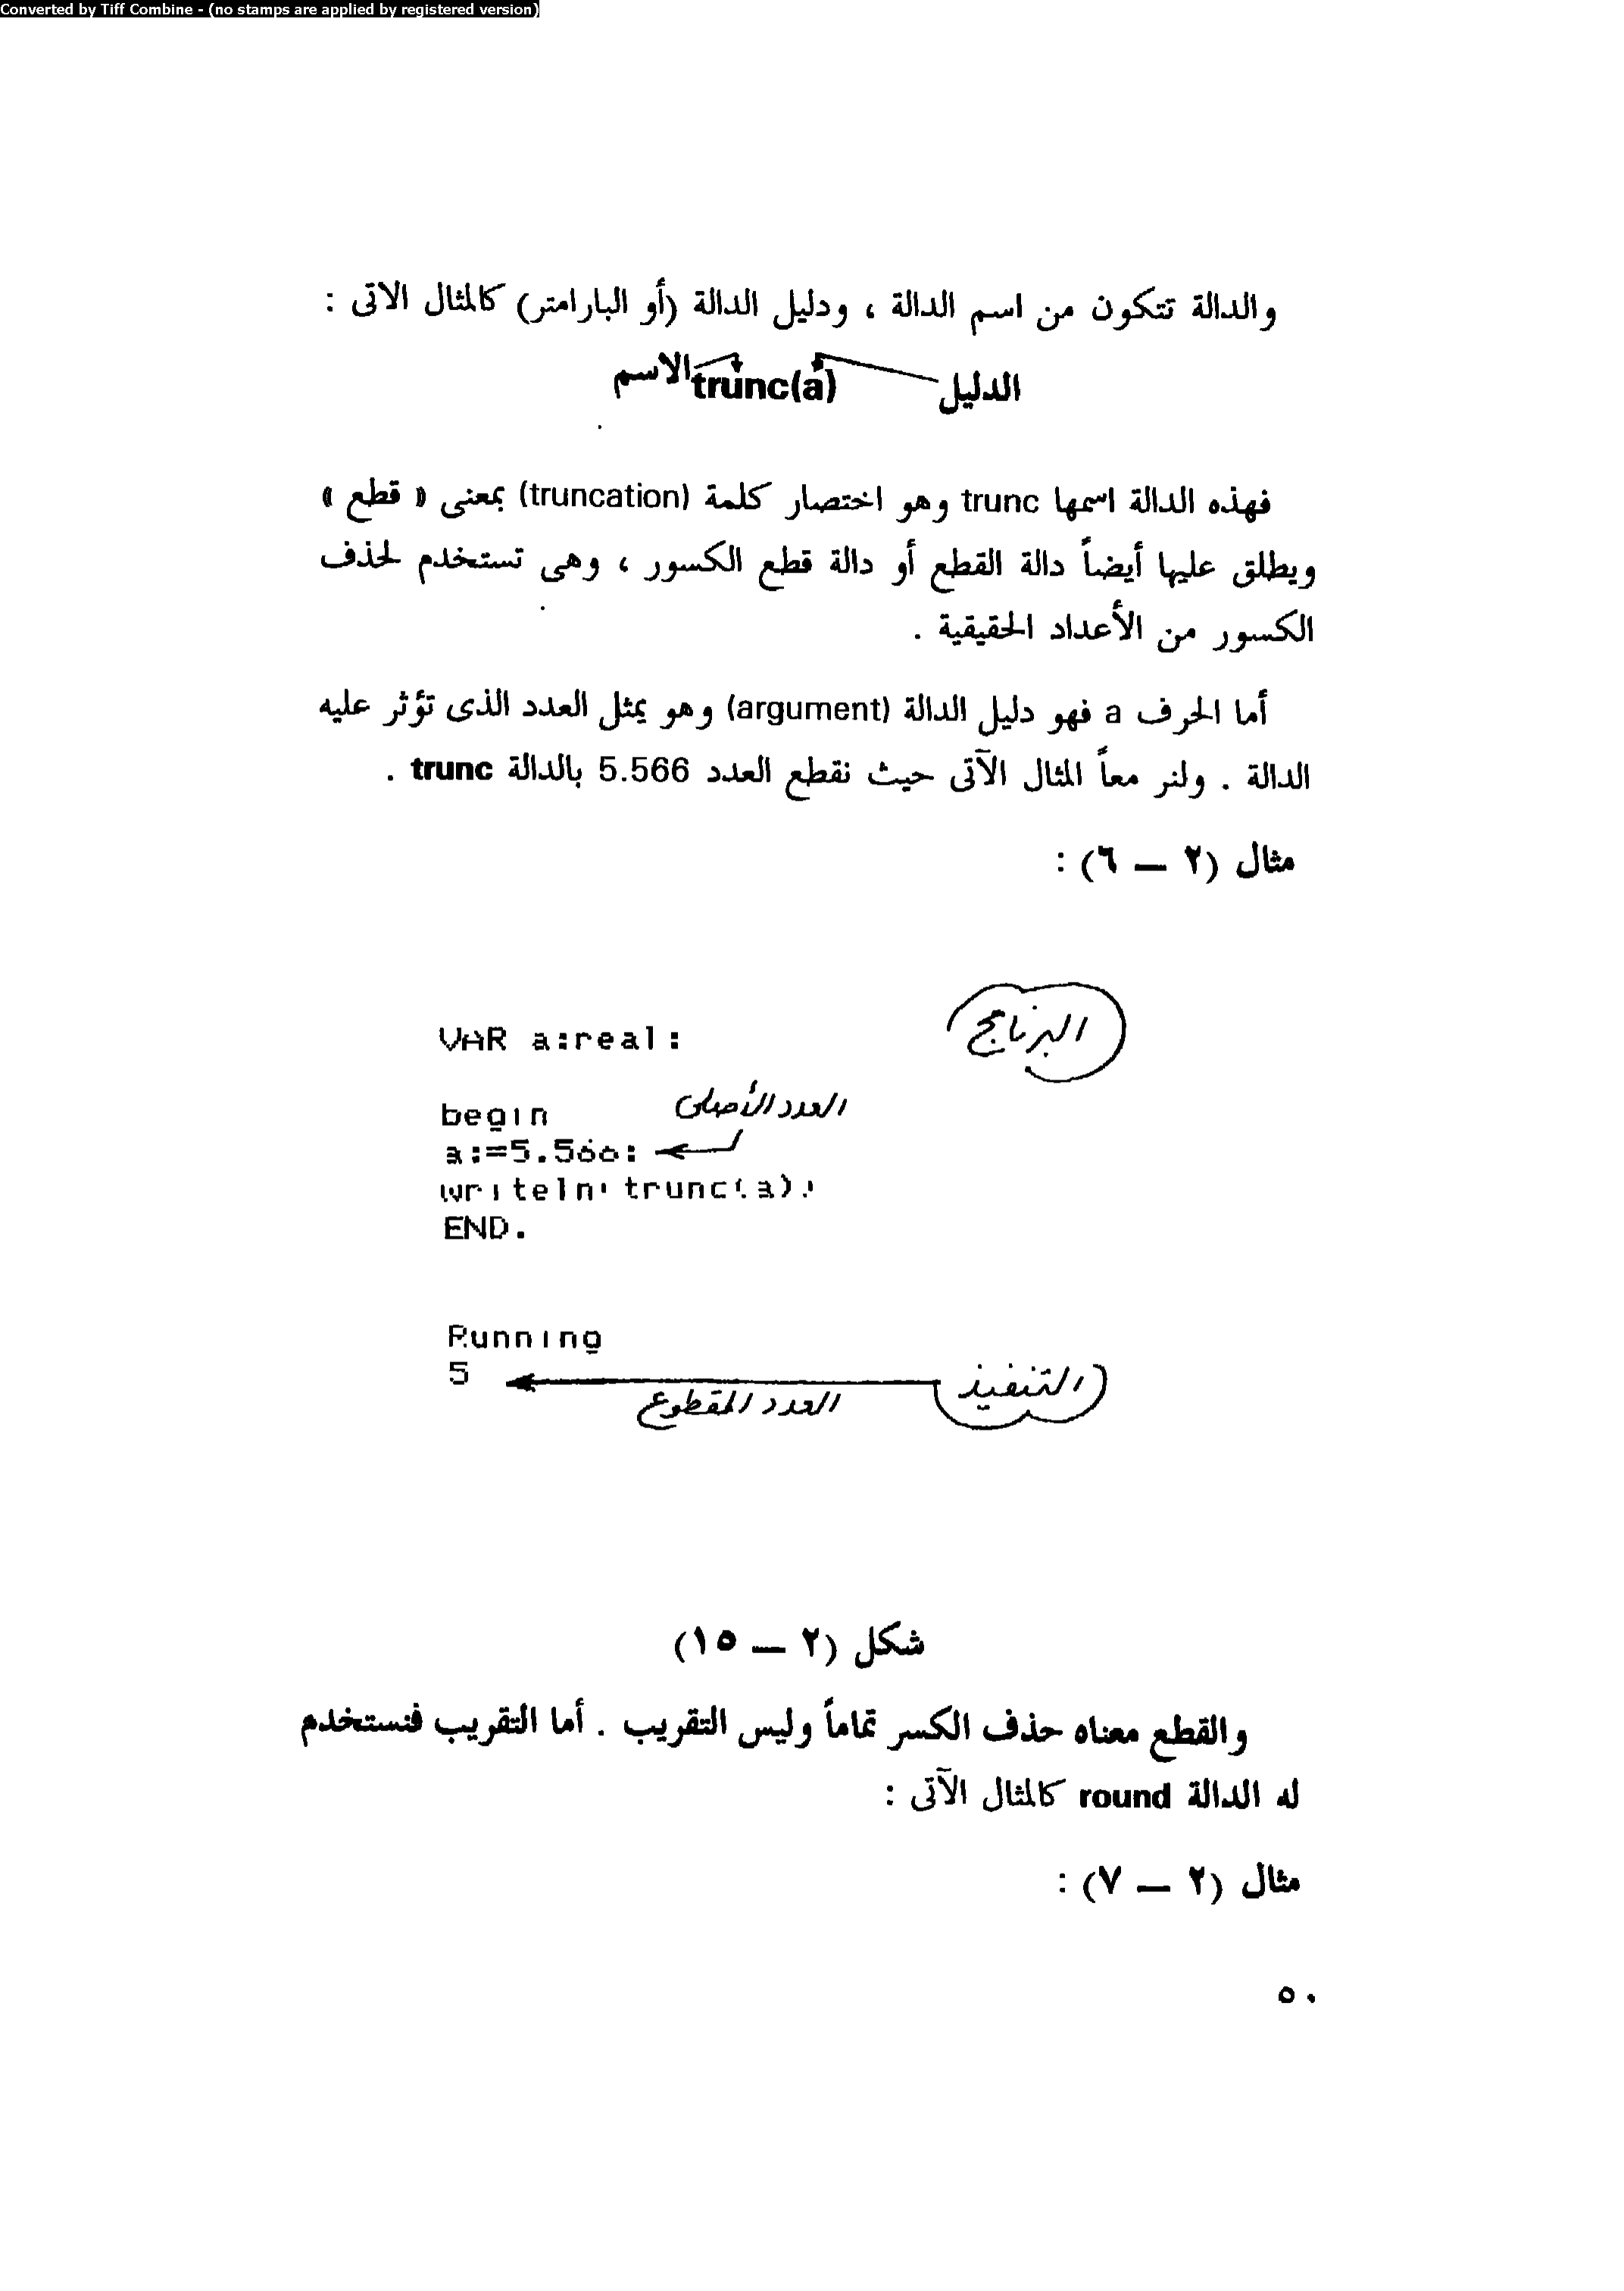 Converted by Tiff Combine - (no stamps are applied by registered version)
والدالة تتكون من اسم الدالة ، ودليل الدالة (أو البارامتر) كالمثال الاتى :
الدليل trunc(a) الاسم
فهذه الدالة اسمها trunc وهو اختصار كلمة (truncation) بمعنى « قطع »
ويطلق عليها أيضاً دالة القطع أو دالة قطع الكسور ، وهى تستخدم لحذف
الكسور من الأعداد الحقيقية .
أما الحرف a فهو دليل الدالة (argument) وهو يمثل العدد الذى تؤثر عليه
الدالة . ولنر معاً المثال الآتى حيث نقطع العدد 5.566 بالدالة trunc .
مثال (٢ — ٦) :
البرنامج
VAR a:real;
العدد الأصلى
begin
a:=5.566;
writeln(trunc(a));
END.
Running
5
التنفيذ
العدد المقطوع
شكل (٢ — ١٥)
والقطع معناه حذف الكسر تماماً وليس التقريب . أما التقريب فنستخدم
له الدالة round كالمثال الآتى :
مثال (٢ — ٧) :
٥٠